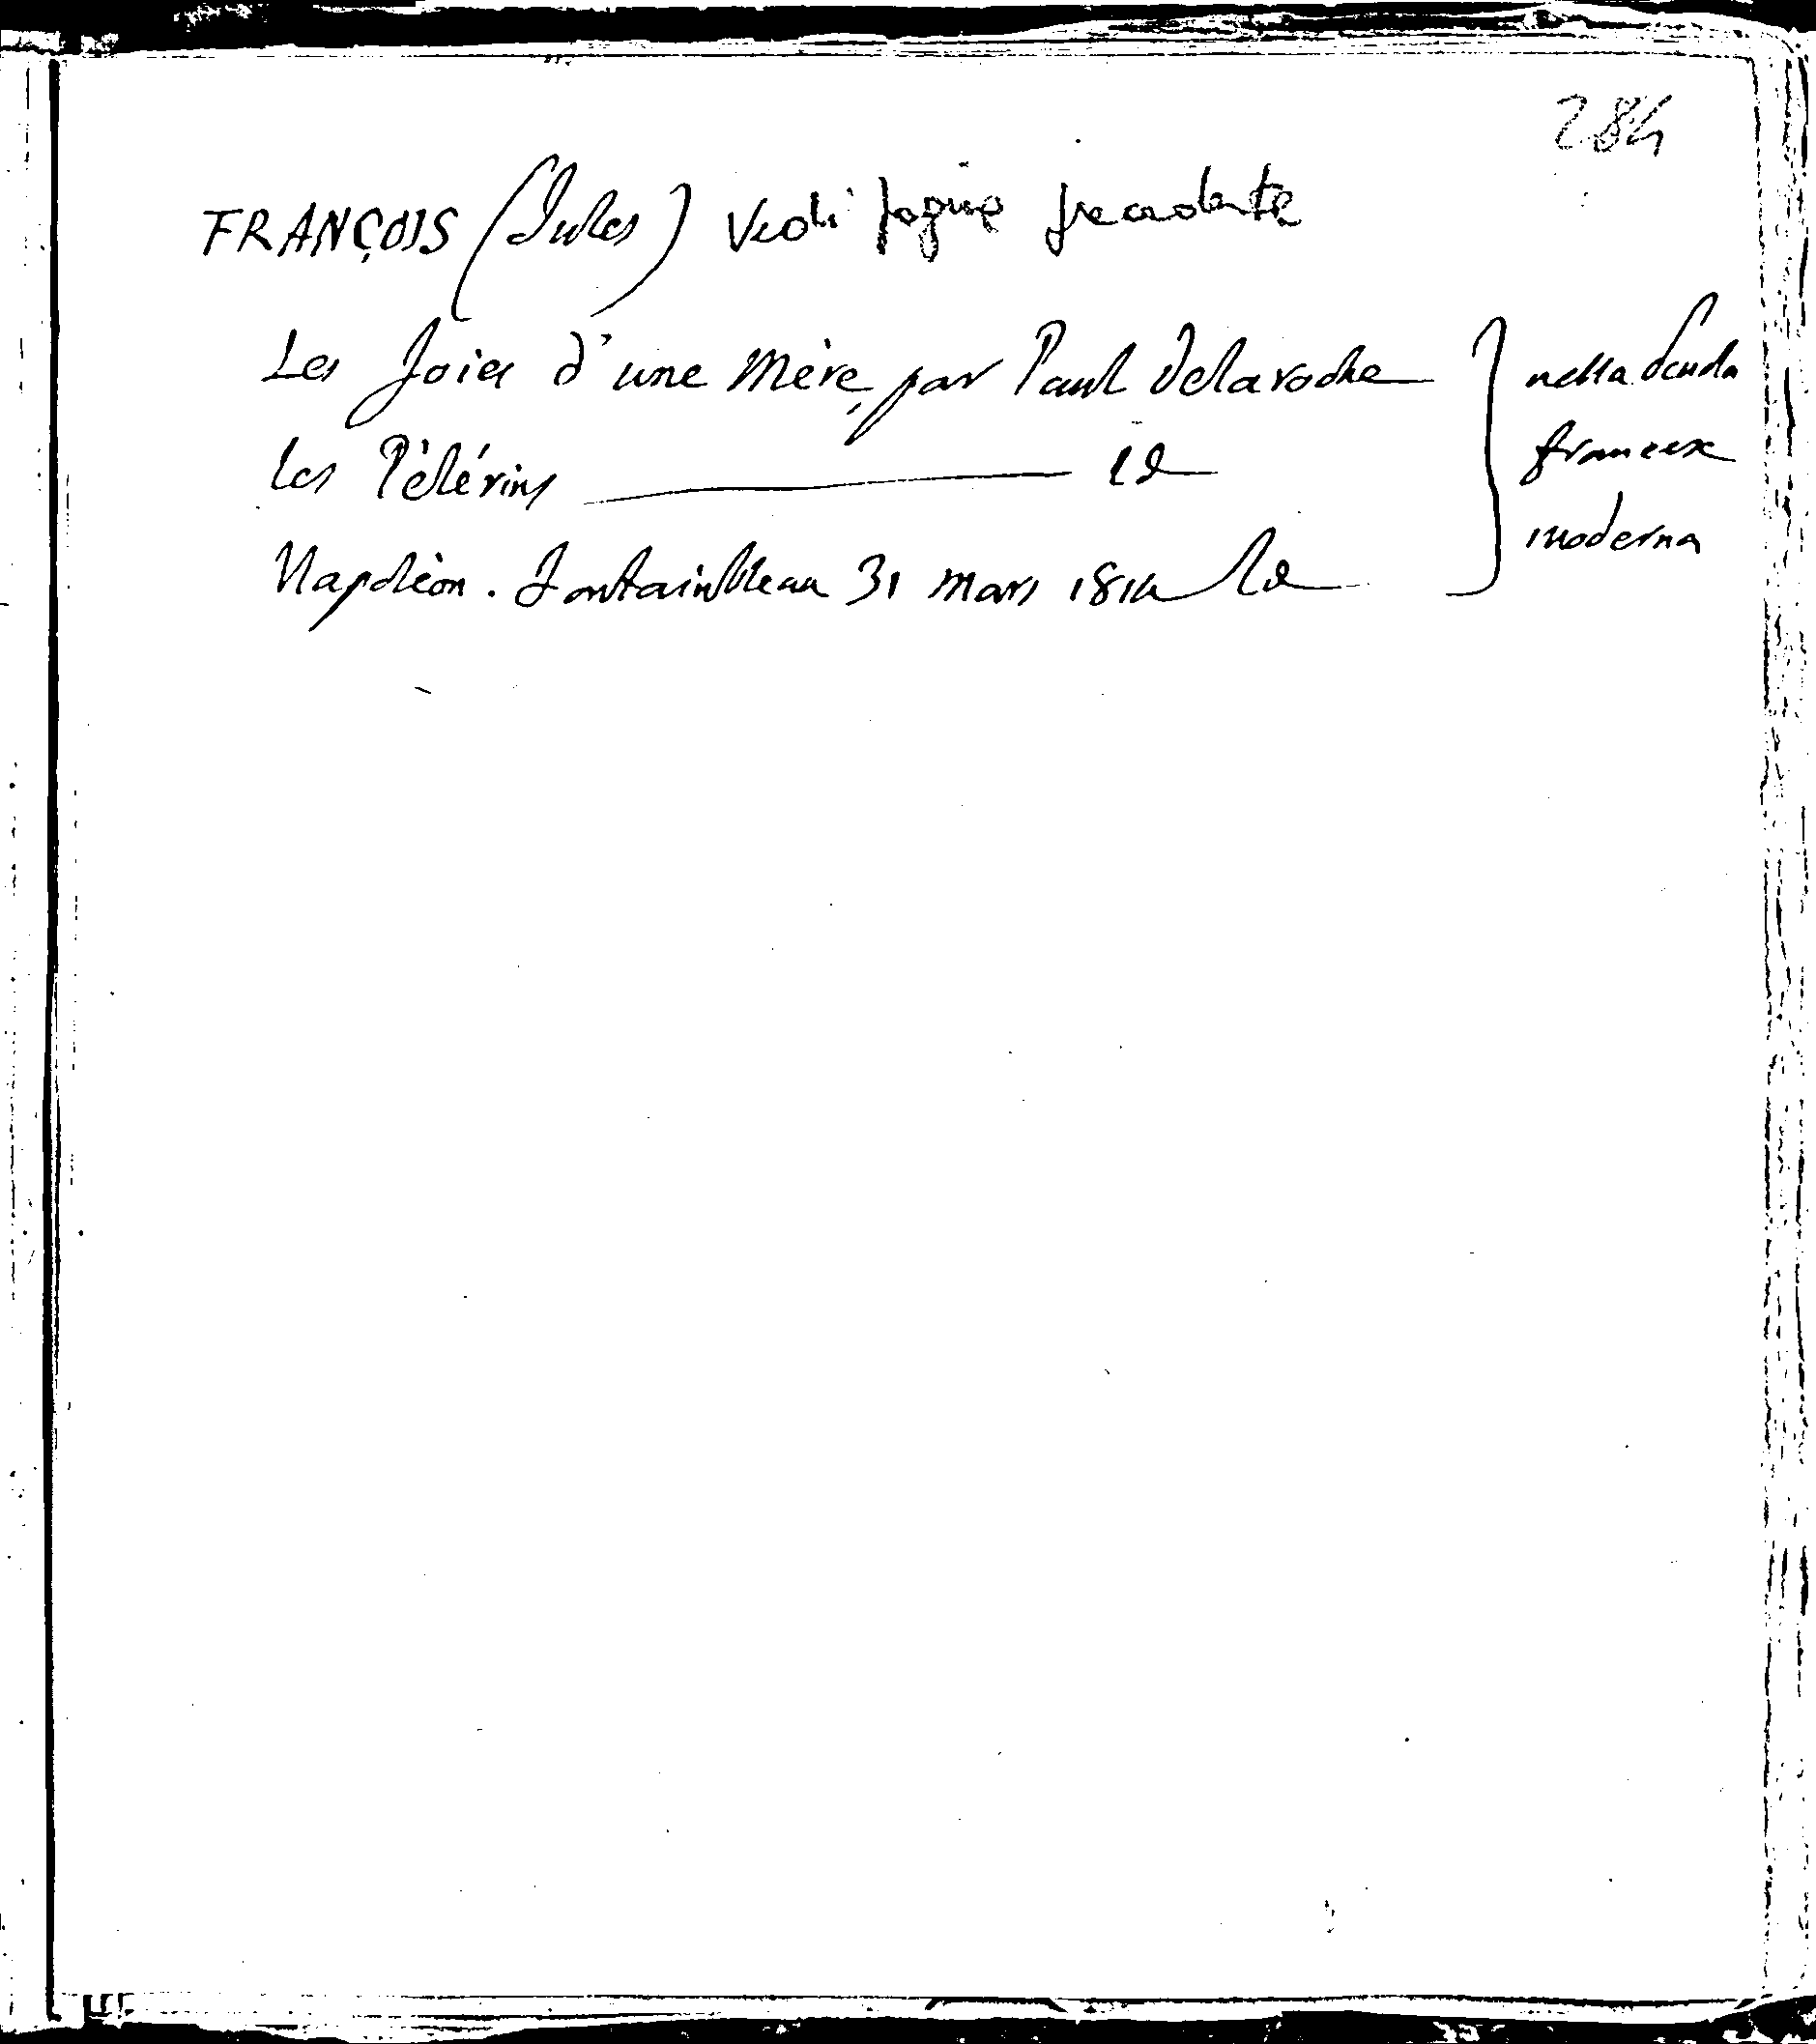 284
FRANÇOIS (Jules) Vedi pagina precedente
Les Joies d'une Mère, par Paul Delaroche
nella Scuola
Les Pèlérins Id
francese
moderna
Napolèon. Fontainbleau 31 mars 1814 Id